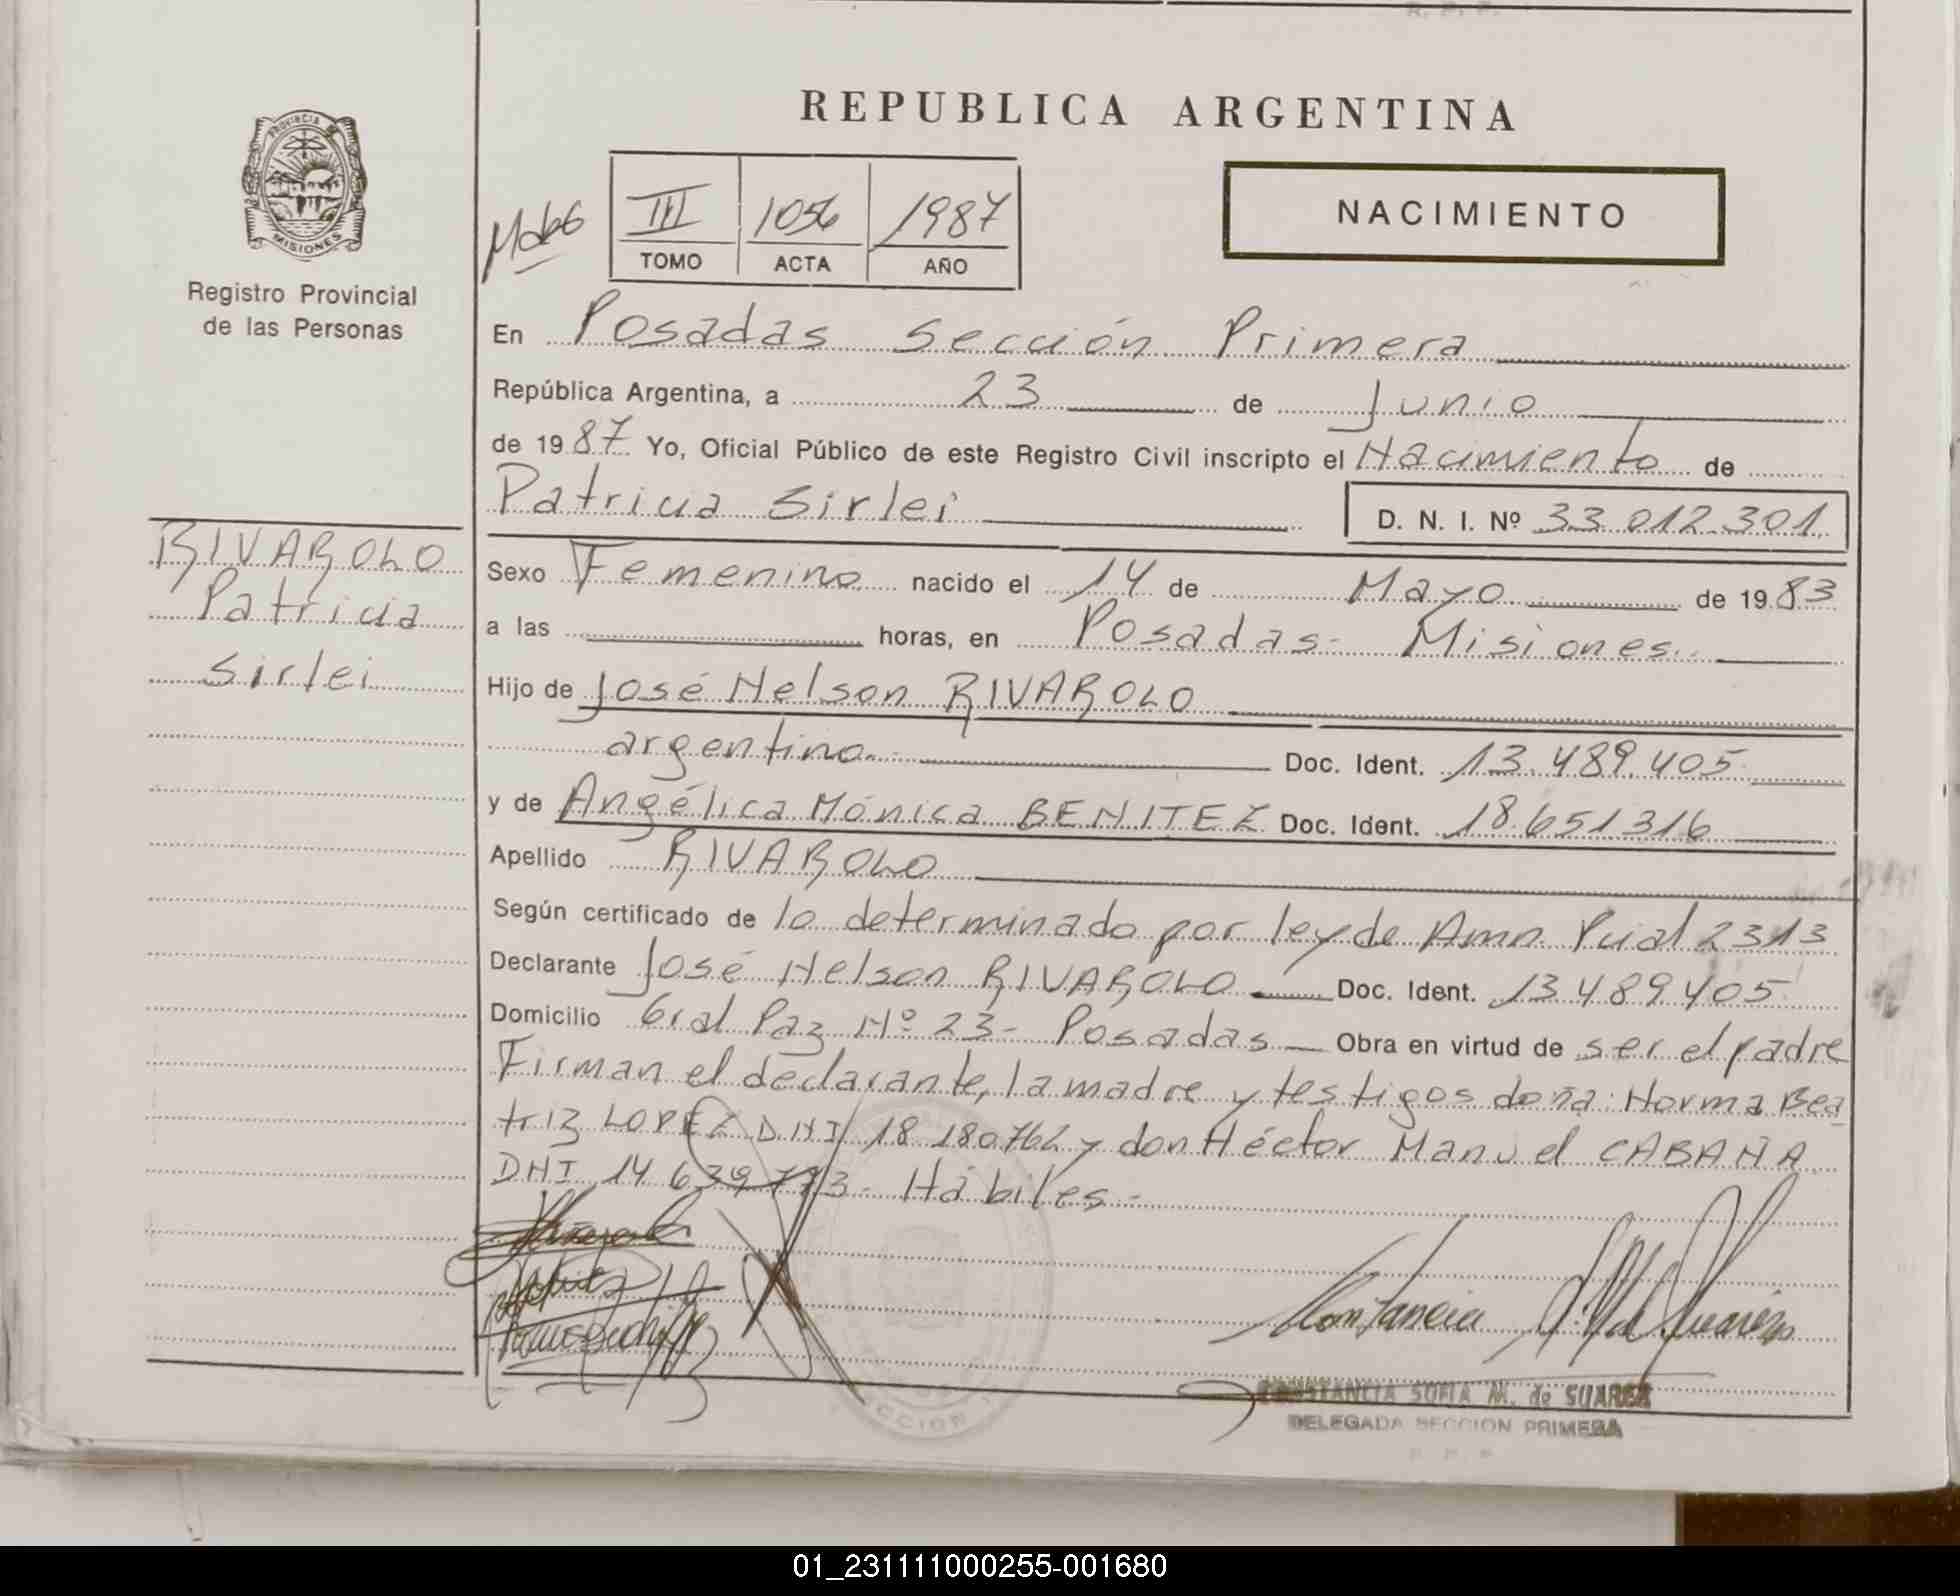 REPUBLICA ARGENTINA
PROVINCIA DE
MISIONES
Registro Provincial
de las Personas
III 1056 1987
TOMO ACTA AÑO
NACIMIENTO
En Posadas Sección Primera
República Argentina, a 23 de Junio
de 1987 Yo, Oficial Público de este Registro Civil inscripto el Nacimiento de
Patricia Sirlei D. N. I. Nº 33.012.301
RIVAROLO
Patricia
Sirlei
Sexo Femenino nacido el 14 de Mayo de 1983
a las horas, en Posadas- Misiones.
Hijo de José Nelson RIVAROLO
argentino. Doc. Ident. 13.489.405
y de Angélica Mónica BENITEZ Doc. Ident. 18.651316
Apellido RIVAROLO
Según certificado de lo determinado por ley de Amn. Pcial 2313
Declarante José Nelson RIVAROLO Doc. Ident. 13489405
Domicilio Gral Paz Nº 23- Posadas Obra en virtud de ser el padre
Firman el declarante, la madre y testigos doña: Norma Bea
triz LOPEZ DNI 18 180762 y don Héctor Manuel CABAÑA
DNI 14 639 773- Hábiles-
CONSTANCIA SOFIA M. de SUAREZ
DELEGADA SECCION PRIMERA
01_231111000255-001680